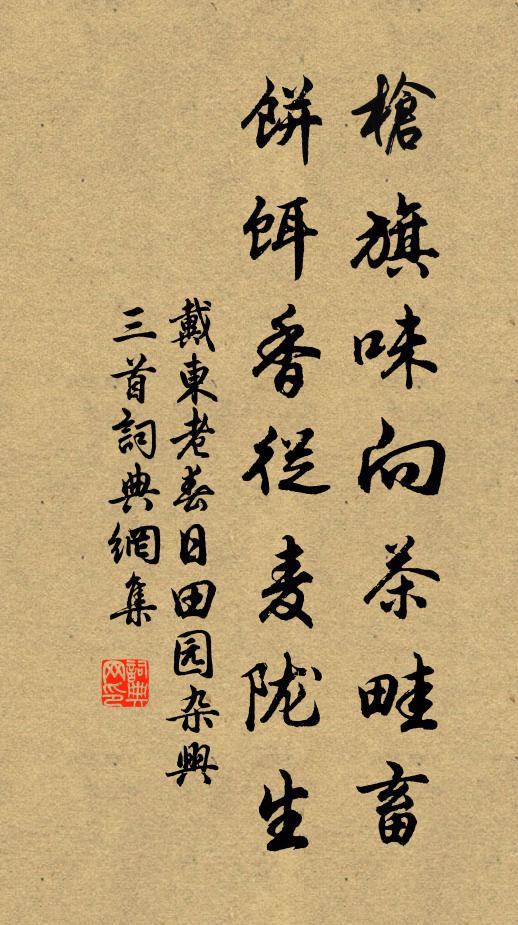 槍旗味向茶畦畜
餅餌香從麦陇生
戴東老春日田园杂興
三首詞典網集
詞典网印